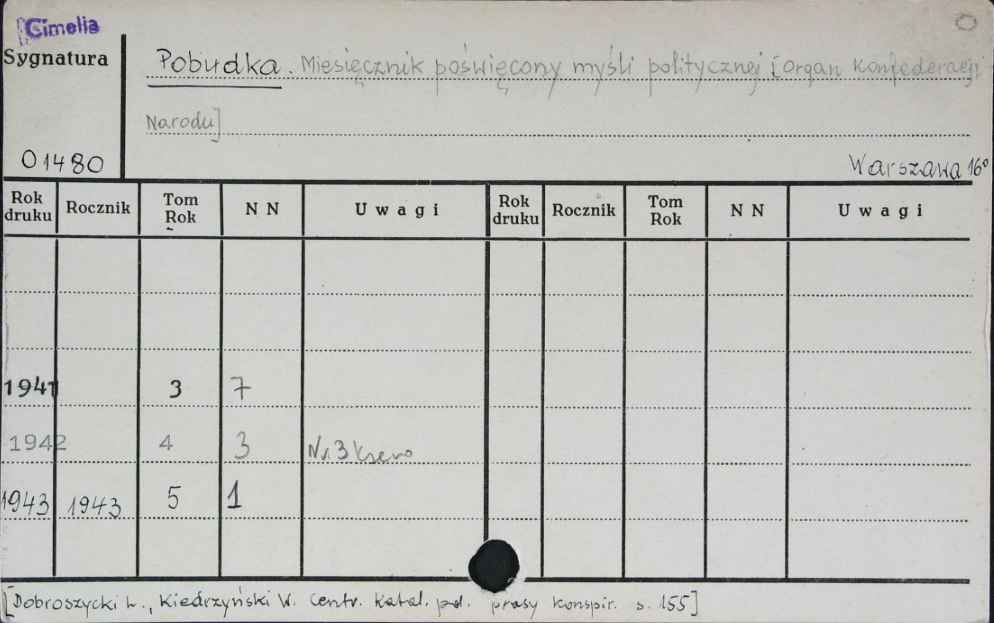 Cimelia
Sygnatura
Pobudka. Miesięcznik poświęcony myśli politycznej [Organ Konfederacji
Narodu]
01480
Warszawa 16°
Rok druku Rocznik Tom Rok NN Uwagi Rok druku Rocznik Tom Rok NN Uwagi
1941 3 7
1942 4 3 Nr. 3 ksero
1943 1943 5 1
[Dobroszycki L., Kiedrzyński W. Centr. katal. pol. prasy konspir. s. 155]